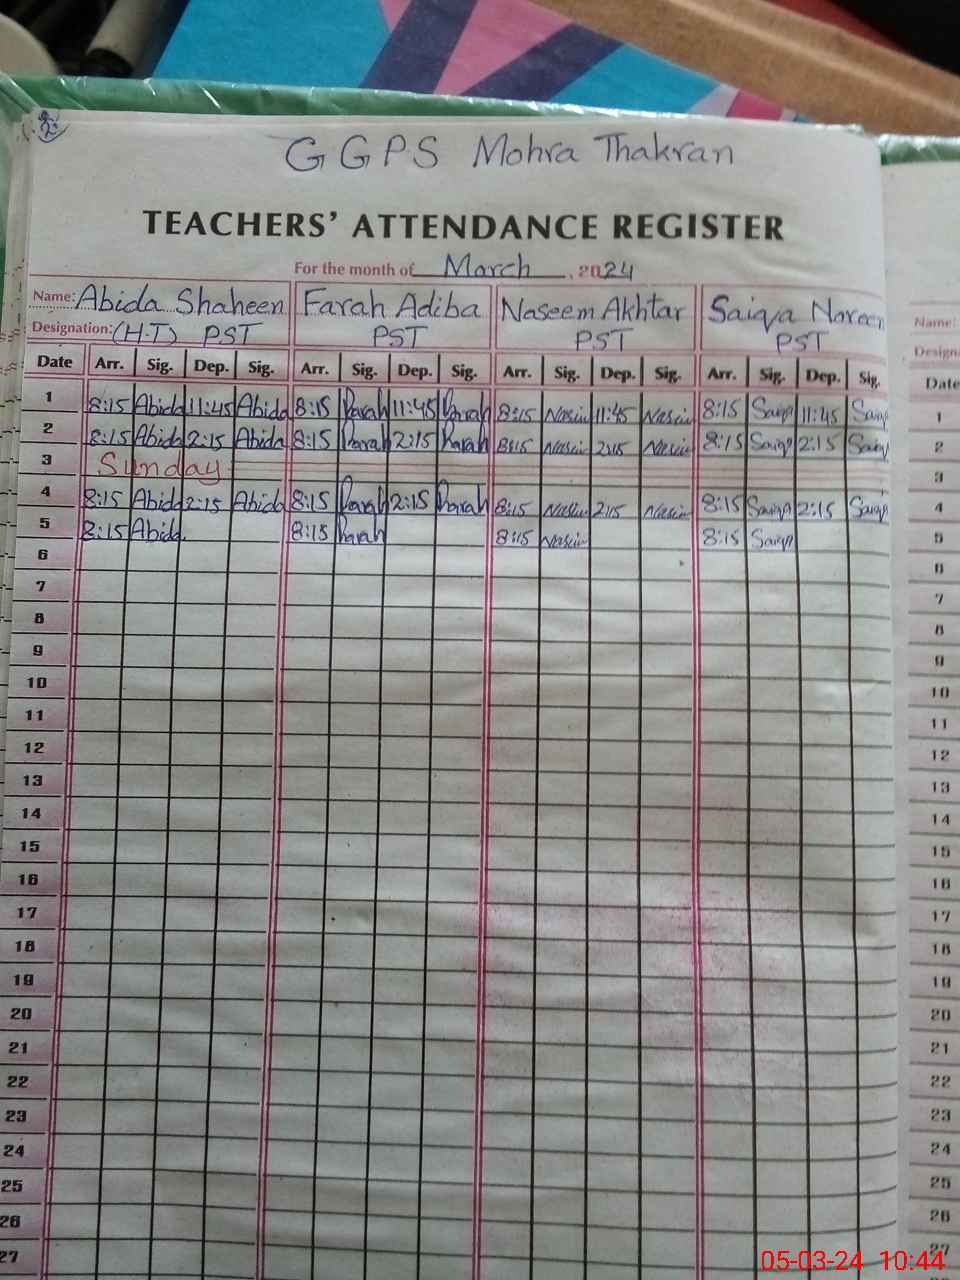 GGPS Mohra Thakran
TEACHERS' ATTENDANCE REGISTER
For the month of March, 2024
Name: Abida Shaheen Farah Adiba Naseem Akhtar Saiqa Noreen Name:
Designation: (H.T) PST PST PST PST
Date Arr. Sig. Dep. Sig. Arr. Sig. Dep. Sig. Arr. Sig. Dep. Sig. Arr. Sig. Dep. Sig. Date
1 8:15 Abida 11:45 Abida 8:15 Farah 11:45 Farah 8:15 Nasim 11:45 Nasim 8:15 Saiqa 11:45 Saiqa 1
2 8:15 Abida 2:15 Abida 8:15 Farah 2:15 Farah 8:15 Nasim 2:15 Nasim 8:15 Saiqa 2:15 Saiqa 2
3 Sunday 3
4 8:15 Abida 2:15 Abida 8:15 Farah 2:15 Farah 8:15 Nasim 2:15 Nasim 8:15 Saiqa 2:15 Saiqa 4
5 8:15 Abida 8:15 Farah 8:15 Nasim 8:15 Saiqa 5
6 6
7 7
8 8
9 9
10 10
11 11
12 12
13 13
14 14
15 15
16 16
17 17
18 18
19 19
20 20
21 21
22 22
23 23
24 24
25 25
26 26
27 27
05-03-24 10:44